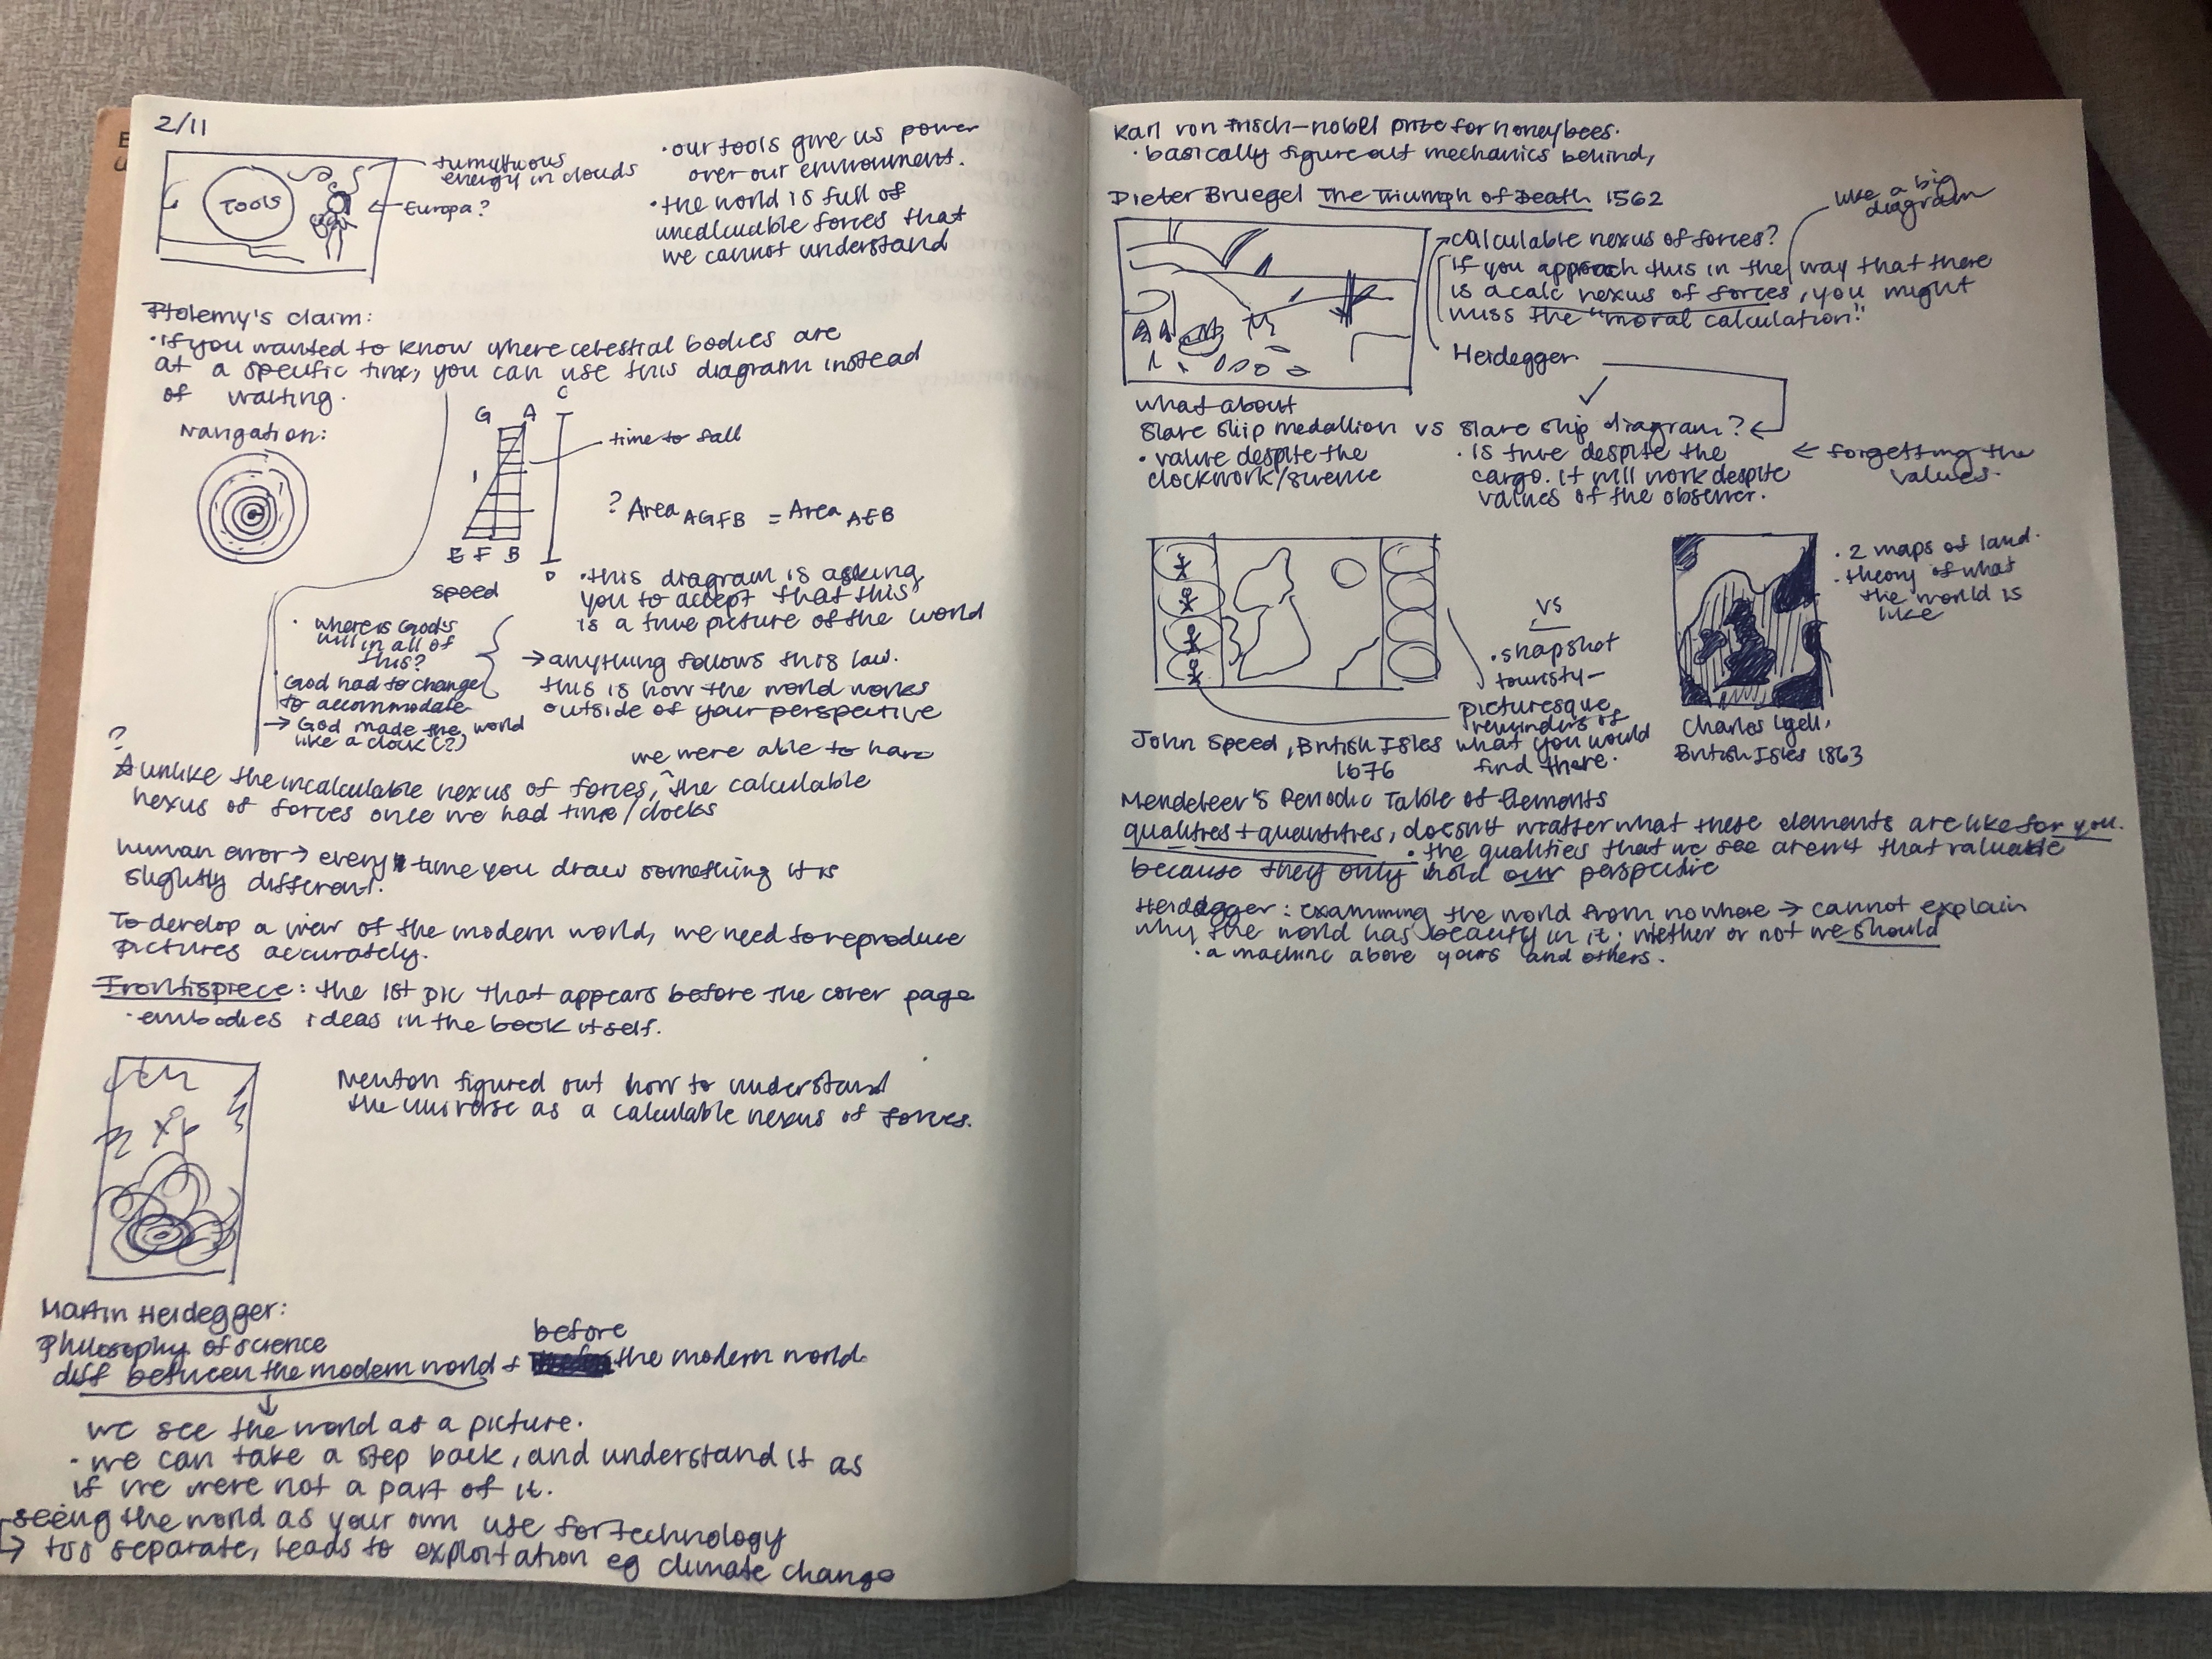 2/11
TOOLS
tumultuous
energy in clouds
Europa?
• our tools give us power
over our environment.
• the world is full of
uncalculable forces that
we cannot understand
Ptolemy's claim:
• if you wanted to know where celestial bodies are
at a specific time, you can use this diagram instead
of waiting.
Navigation:
G A C
time to fall
I
E F B
D
speed
? Area AGFB = Area AEB
• this diagram is asking
you to accept that this
is a true picture of the world
→ anything follows this law.
this is how the world works
outside of your perspective
• where is God's
will in all of
this?
• God had to change
to accommodate
→ God made the world
like a clock (?)
?
we were able to have
unlike the incalculable nexus of forces, ^ the calculable
nexus of forces once we had time/clocks
human error → every time you draw something it is
slightly different.
To develop a view of the modern world, we need to reproduce
pictures accurately.
Frontispiece: the 1st pic that appears before the cover page
• embodies ideas in the book itself.
Newton figured out how to understand
the universe as a calculable nexus of forces.
Martin Heidegger:
Philosophy of science
before
diff between the modern world + the modern world.
↓
we see the world as a picture.
• we can take a step back, and understand it as
if we were not a part of it.
seeing the world as your own use for technology
→ too separate, leads to exploitation eg climate change
Karl von Frisch - nobel prize for honeybees.
• basically figure out mechanics behind,
Dieter Bruegel The Triumph of Death 1562
like a big
diagram
calculable nexus of forces?
if you approach this in the way that there
is a calc nexus of forces, you might
miss the "moral calculation."
Heidegger
what about
slave ship medallion vs slave ship diagram?
• value despite the
clockwork/science
• is true despite the
cargo. it will work despite
values of the observer.
← forgetting the
values.
vs
• snapshot
touristy-
picturesque
reminders of
what you would
find there.
John Speed, British Isles
1676
• 2 maps of land.
• theory of what
the world is
like
Charles Lyell,
British Isles 1863
Mendeleer's Periodic Table of Elements
qualities + quantities, doesn't matter what these elements are like for you.
• the qualities that we see aren't that valuable
because they only hold our perspective
Heidegger: examining the world from nowhere → cannot explain
why the world has beauty in it; whether or not we should
• a machine above yours and others.